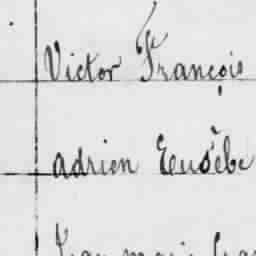 Victor François
adrien Eusèbe